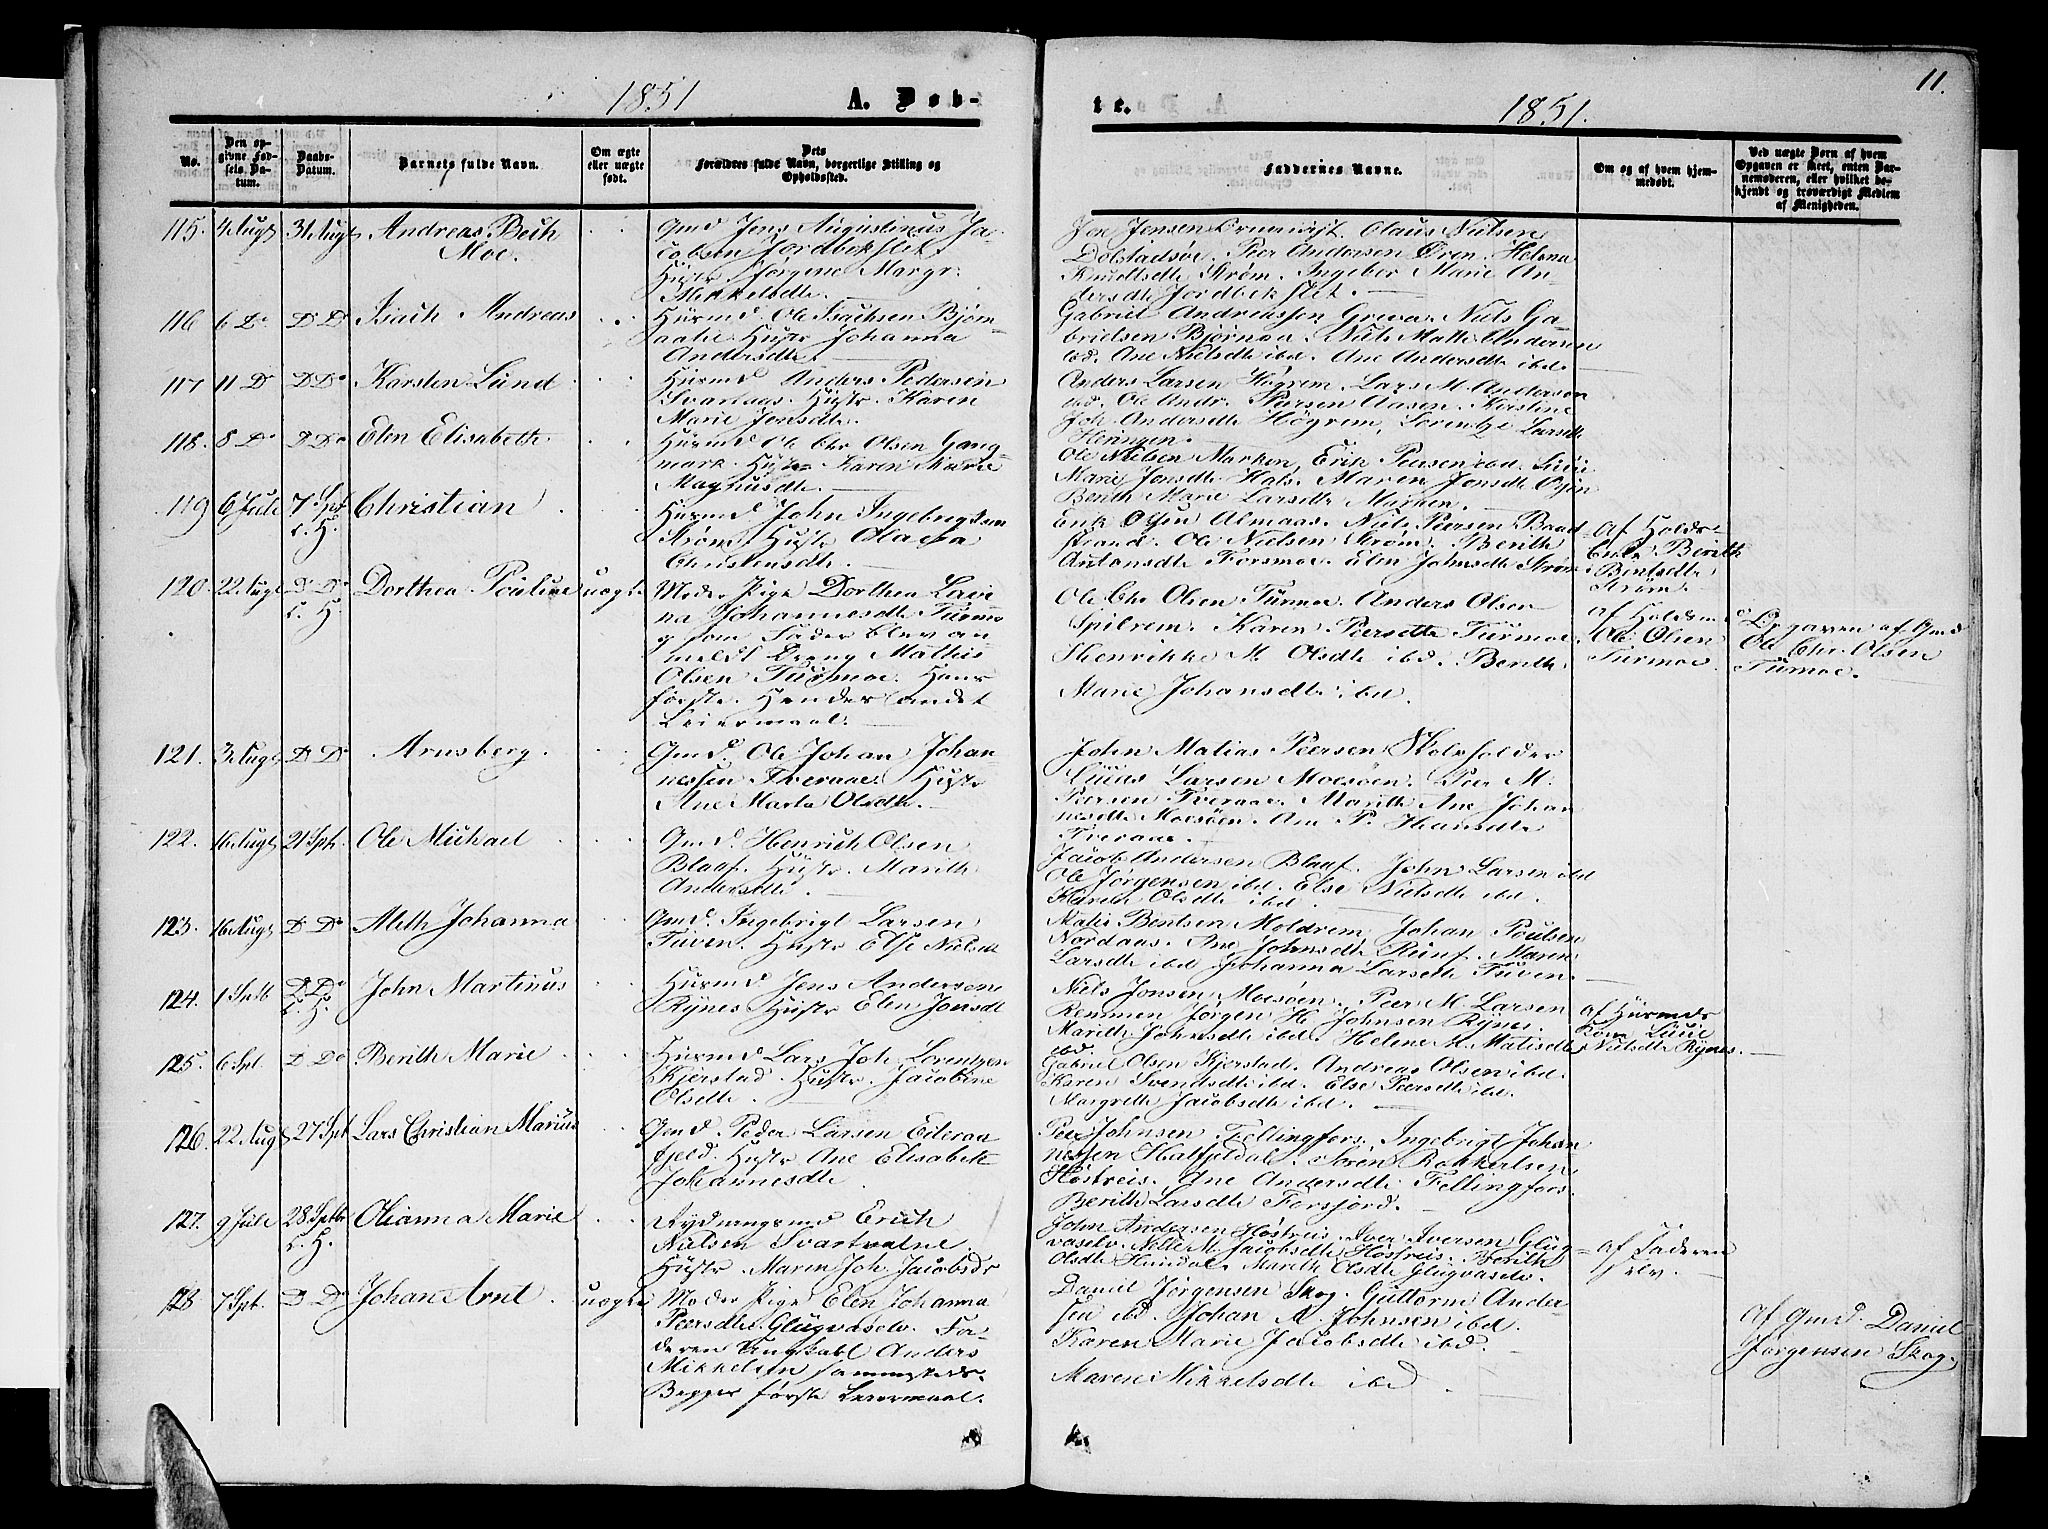 11.
1851
A. Døb-
te.
1851.
No.
Den op-
givne Fød-
sels Da-
tum.
Daabs-
Datum.
Barnets fulde Navn.
Om ægte
eller uægte
født.
Dets
Forældres fulde Navn, borgerlige Stilling og
Opholdssted.
Faddernes Navne.
Om og af hvem hjem-
medøbt.
Ved uægte Børn af hvem
Opgaven er skeet, enten Bar-
nemoderen, eller hvilket be-
kjendt og troværdigt Medlem
af Menigheden.
115. 4 Augst 31 Augst Andreas Bech
Moe.
Gmd Jens Augustinus Ja-
cobsen Jordbekslet
Hustr Jørgine Margr:
Mikkelsdtr.
Jon Jensen Olaus Nielsen
Dolstadsøe. Peer Andersen Øren. Helena
Knudtsdtr Strøm. Ingebor Marie An-
dersdtr Jordbekslet.
116 6 Do D Do Isach Andreas
Huusmd. Ole Isachsen Bjørn-
aalie Hustr Johanna
Andersdtr.
Gabriel Andreassen Greva. Niels Ga-
brielsen Bjørnaa. Niels Matth: Andersen
ibd. Ane Nielsdtr ibd. Ane Andersdtr ibd.
117 11 Do D Do Karsten Lund
Huusmd Anders Pedersen
Svartaas. Hustr. Karen
Marie Jonsdtr.
Anders Larsen Høgrem. Lars M. Andersen
ibd. Ole Andr. Peersen Aasen. Kirstine
Joh. Andersdtr Høgrem, Lorentze Larsdtr
Heringen.
118. 8 Do D Do Elen Elisabeth
Huusmd Ole Chr Olsen Gang-
mark. Hustr Karen Marie
Magnusdtr.
Ole Nielsen Marken, Erik Peersen ibd.
Marie Jonsdtr Hals. Maren Jonsdtr
Berith Marie Larsdtr Marken.
119 6 Juli 7 Spt Christian
C. H.
Huusmd John Ingebrigtsen
Strøm Hustr Olava
Christensdtr.
Erik Olsen Almaas. Niels Peersen Baad-
strand. Ole Nielsen Strøm. Berith
Antonsdtr Forsmoe. Elen Johnsdtr Strøm
af Holds-
Enke Berith
Bentsdtr
Strøm.
120. 22 Augst D Do Dorthea Pouline uægte
C. H.
Moder Pige Dorthea Lavi
na Johannesdtr Turmoe
og som Fader blev an
meldt Dreng Mathis
Olsen Turmoe. Hans
første. Hendes andet
Leiermaal.
Ole Chr Olsen Turmoe. Anders Olsen
Spilrem. Karen Peersdtr Turmoe.
Henrikke M. Olsdtr ibd. Berith
Marie Johansdtr ibd.
af Holdsmd
Ole Olsen
Turmoe.
Opgaven af Gmd
Ole Chr. Olsen
Turmoe.
121. 3 Augst D Do Arnsberg.
Gmd. Ole Johan Johan-
nessen Tveraae. Hustr
Ane Marta Olsdtr.
John Matias Peersen Skoleholder
Larsen Moesøen. Peer M.
Peersen Tveraae. Marith Ane Johan
nesdtr Moesøen. Ane P. Hansdtr
Tveraae.
122. 16 Augst 21 Spt. Ole Michael
Gmd. Henrich Olsen
Blaaf. Hustr. Marith
Andersdtr.
Jacob Andersen Blaaf. John Larsen ibd
Ole Jørgensen ibd. Else Nielsdtr ibd.
Karen Olsdtr ibd.
123. 16 Augst D Do Meth Johanna
Gmd. Ingebrigt Larsen
Tuven. Hustr Else Nielsdtr
Matis Bentsen Moldrem Johan Poulsen
Nordaas. Ane Johnsdtr Ruuf. Maren
Larsdtr ibd Johanna Larsdtr Tuven.
124. 1 Sptb D. Do John Martinus
C. H.
Huusmd Jens Andersen
Rynes Hustr Elen Jonsdtr
Niels Jonsen Moesøen. Peer M. Larsen
Remmen Jørgen H. Johnsen Rynes.
Marith Johnsdtr ibd. Helene M. Matisdtr
ibd.
af Huusmds
Kone
Nielsdtr Rynes.
125. 6 Spt. D Do Berith Marie
Huusmd Lars Joh. Lorentzen
Kjerstad. Hustr. Jacobine
Olsdtr.
Gabriel Olsen Kjerstad. Andreas Olsen ibd.
Karen Svendsdtr ibd. Else Peersdtr ibd.
Margrethe Jacobsdtr ibd.
126. 22 Augst 27 Spt Lars Christian Marius
Gmd. Peder Larsen Eiteraa
fjeld. Hustr Ane Elisabeth
Johannesdtr.
Peer Johnsen Fellingfors. Ingebrigt Johan
nessen Hatfjeldal. Søren Rokkertsen
Høstreis. Ane Andersdtr Fellingfors.
Berith Larsdtr Forsjord.
127. 9 Juli 28 Sptb Olianna Marie
C. H.
Rydningsmd Erich
Nielsen Svartvatne.
Hustr. Maren Joh. Jacobsdr
John Andersen Høstreis. Iver Iversen Glug-
vaselv. Nille M. Jacobsdtr Høstreis. Berith
Olsdtr Hundal. Marith Olsdtr Glugvaselv.
af Faderen
selv.
128 7 Spt. D Do Johan Arnt. uægte
Moder Pige Elen Johanna
Peersdtr. Glugvaselv. Fa-
deren Ungkarl Anders
Mikkelsen sammesteds.
Begges første Leiermaal.
Daniel Jørgensen Skog. Guttorm Ander-
sen ibd. Johan M. Johnsen ibd.
Karen Marie Jacobsdtr ibd.
Maren Mikkelsdtr ibd.
af Gmd. Daniel
Jørgensen Skog.